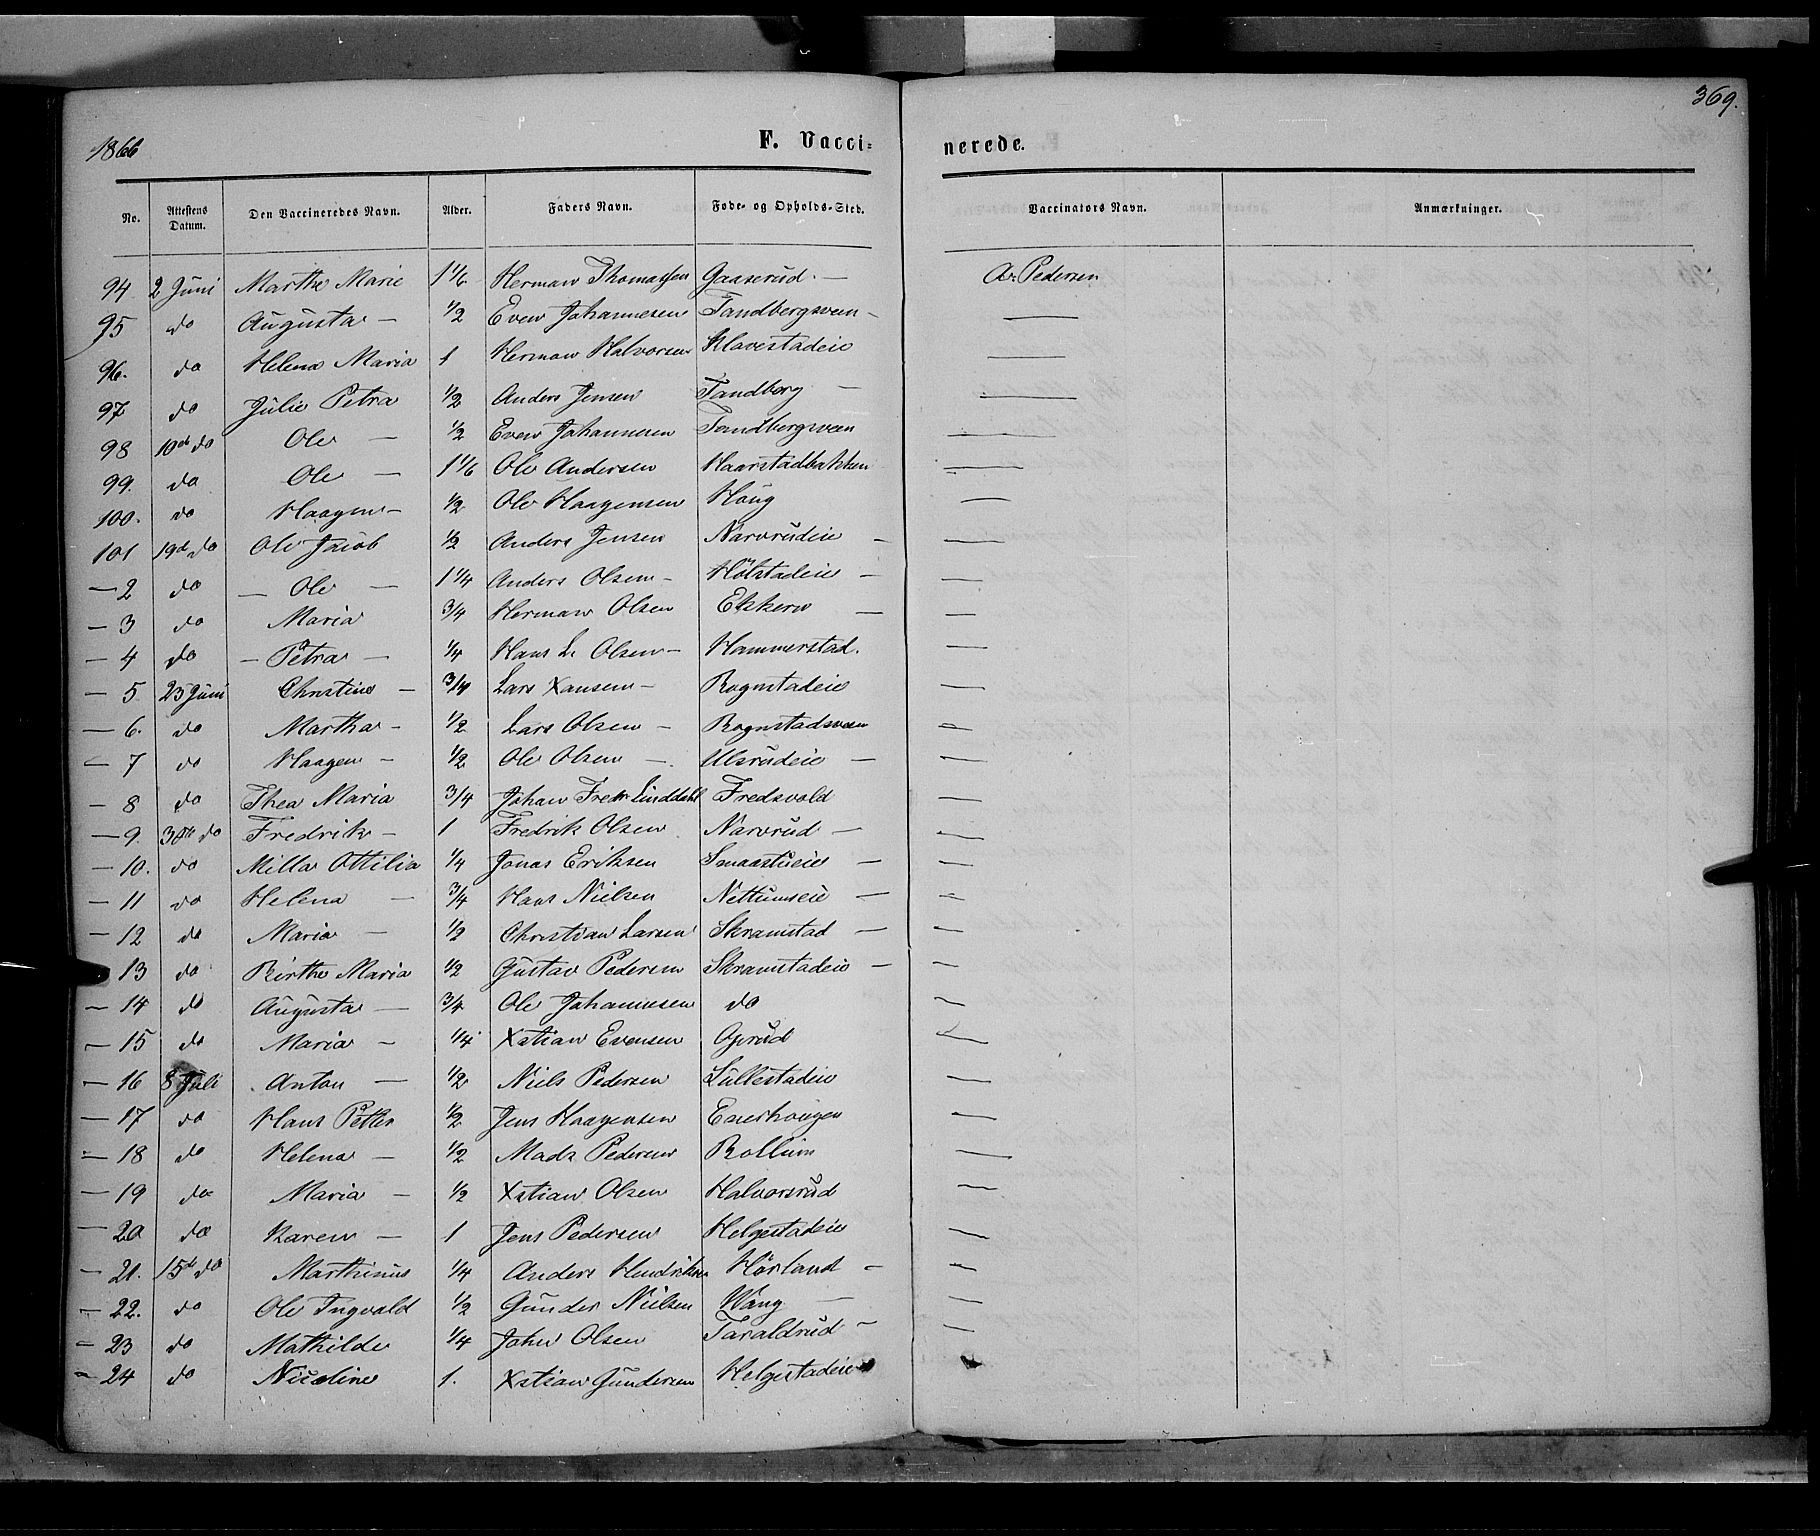 369.
1866
F. Vacci- nerede.
No. Attestens Datum. Den Vaccineredes Navn. Alder. Faders Navn. Føde- og Opholds-Sted. Vaccinators Navn. Anmærkninger.
94 2 Juni Marthe Marie 1 1/6 Herman Thomassen Gaaserud - A. Pedersen
95 do Augusta - 1/2 Even Johannesen Tandbergsveen -
96. do Helena Maria 1 Herman Halvorsen Klavestadeie
97 do Julie Petra 1/2 Anders Jensen Tandberg -
98 10de do Ole - 1/2 Even Johannesen Tandbergsveen
99. do Ole - 1 1/6 Ole Andersen Haarstadbakken
100. do Haagen - 1/2 Ole Haagensen Houg
101 19d do Ole Jacob 1/2 Anders Jensen Narvrudeie -
- 2 do - Ole - 1 1/4 Anders Olsen - Holstadeie -
- 3 do Maria 3/4 Herman Olsen Ekkern -
- 4 do - Petra - 1/4 Hans L. Olsen - Hammerstad.
- 5 23 Juni Christine - 3/4 Lars Hansen - Rognstadeie
- 6. do Martha - 1/2 Lars Olsen - Rognstadsveen
- 7 do Haagen - 1/2 Ole Olsen - Ulsrudeie -
- 8 do Thea Maria 3/4 Johan Fredr Linddahl Fredsvold
- 9. 30te do Fredrik - 1 Fredrik Olsen Narvrud -
- 10. do Milla Ottilia 1/4 Jonas Eriksen Smaastueie -
- 11 do Helena - 3/4 Hans Nielsen Nettumseie -
- 12 do Maria - 1/2 Christian Larsen Skramstad -
- 13 do Birthe Maria 1/2 Gustav Pedersen Skramstadeie -
- 14 do Augusta - 3/4 Ole Johannesen do
- 15 do Maria - 1/4 Xstian Evensen Opsrud
- 16 8 Juli Anton - 1/2 Niels Pedersen Lullestadeie
- 17 do Hans Petter 1/2 Jens Haagensen Enerhougen
- 18 do Helena - 1/2 Mads Pedersen Bollum
- 19 do Maria - 1/2 Xstian Olsen Halvorsrud
- 20 do Karen - 1 Jens Pedersen Helgestadeie
- 21. 15d do Marthinus 1/4 Anders Hendriksen Hørland -
- 22. do Ole Ingvald 1/2 Gunder Nielsen Wang -
- 23 do Mathilde 1/4 John Olsen Taraldrud -
- 24 do Nicoline 1. Xstian Gundersen Helgestadeie